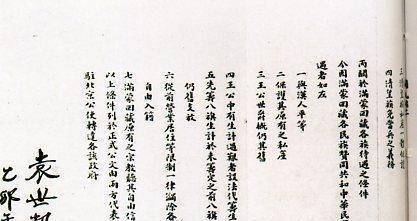 四清皇族免當兵之義務
丙關於滿蒙回藏各族待遇之條件
今因滿蒙回藏各民族贊同共和中華民
遇者如左
一與漢人平等
二保護其原有之私產
三王公世爵概仍其舊
四王公中有生計過艱者設法代籌生
五先籌八旗生計於未籌定之前八旗
仍舊支放
六從前營業居住等限制一律蠲除各
自由入籍
七滿蒙回藏原有之宗教聽其自由信
以上條件列於正式公文由兩方代表
駐北京公使轉達各該政府
袁世
乙卯